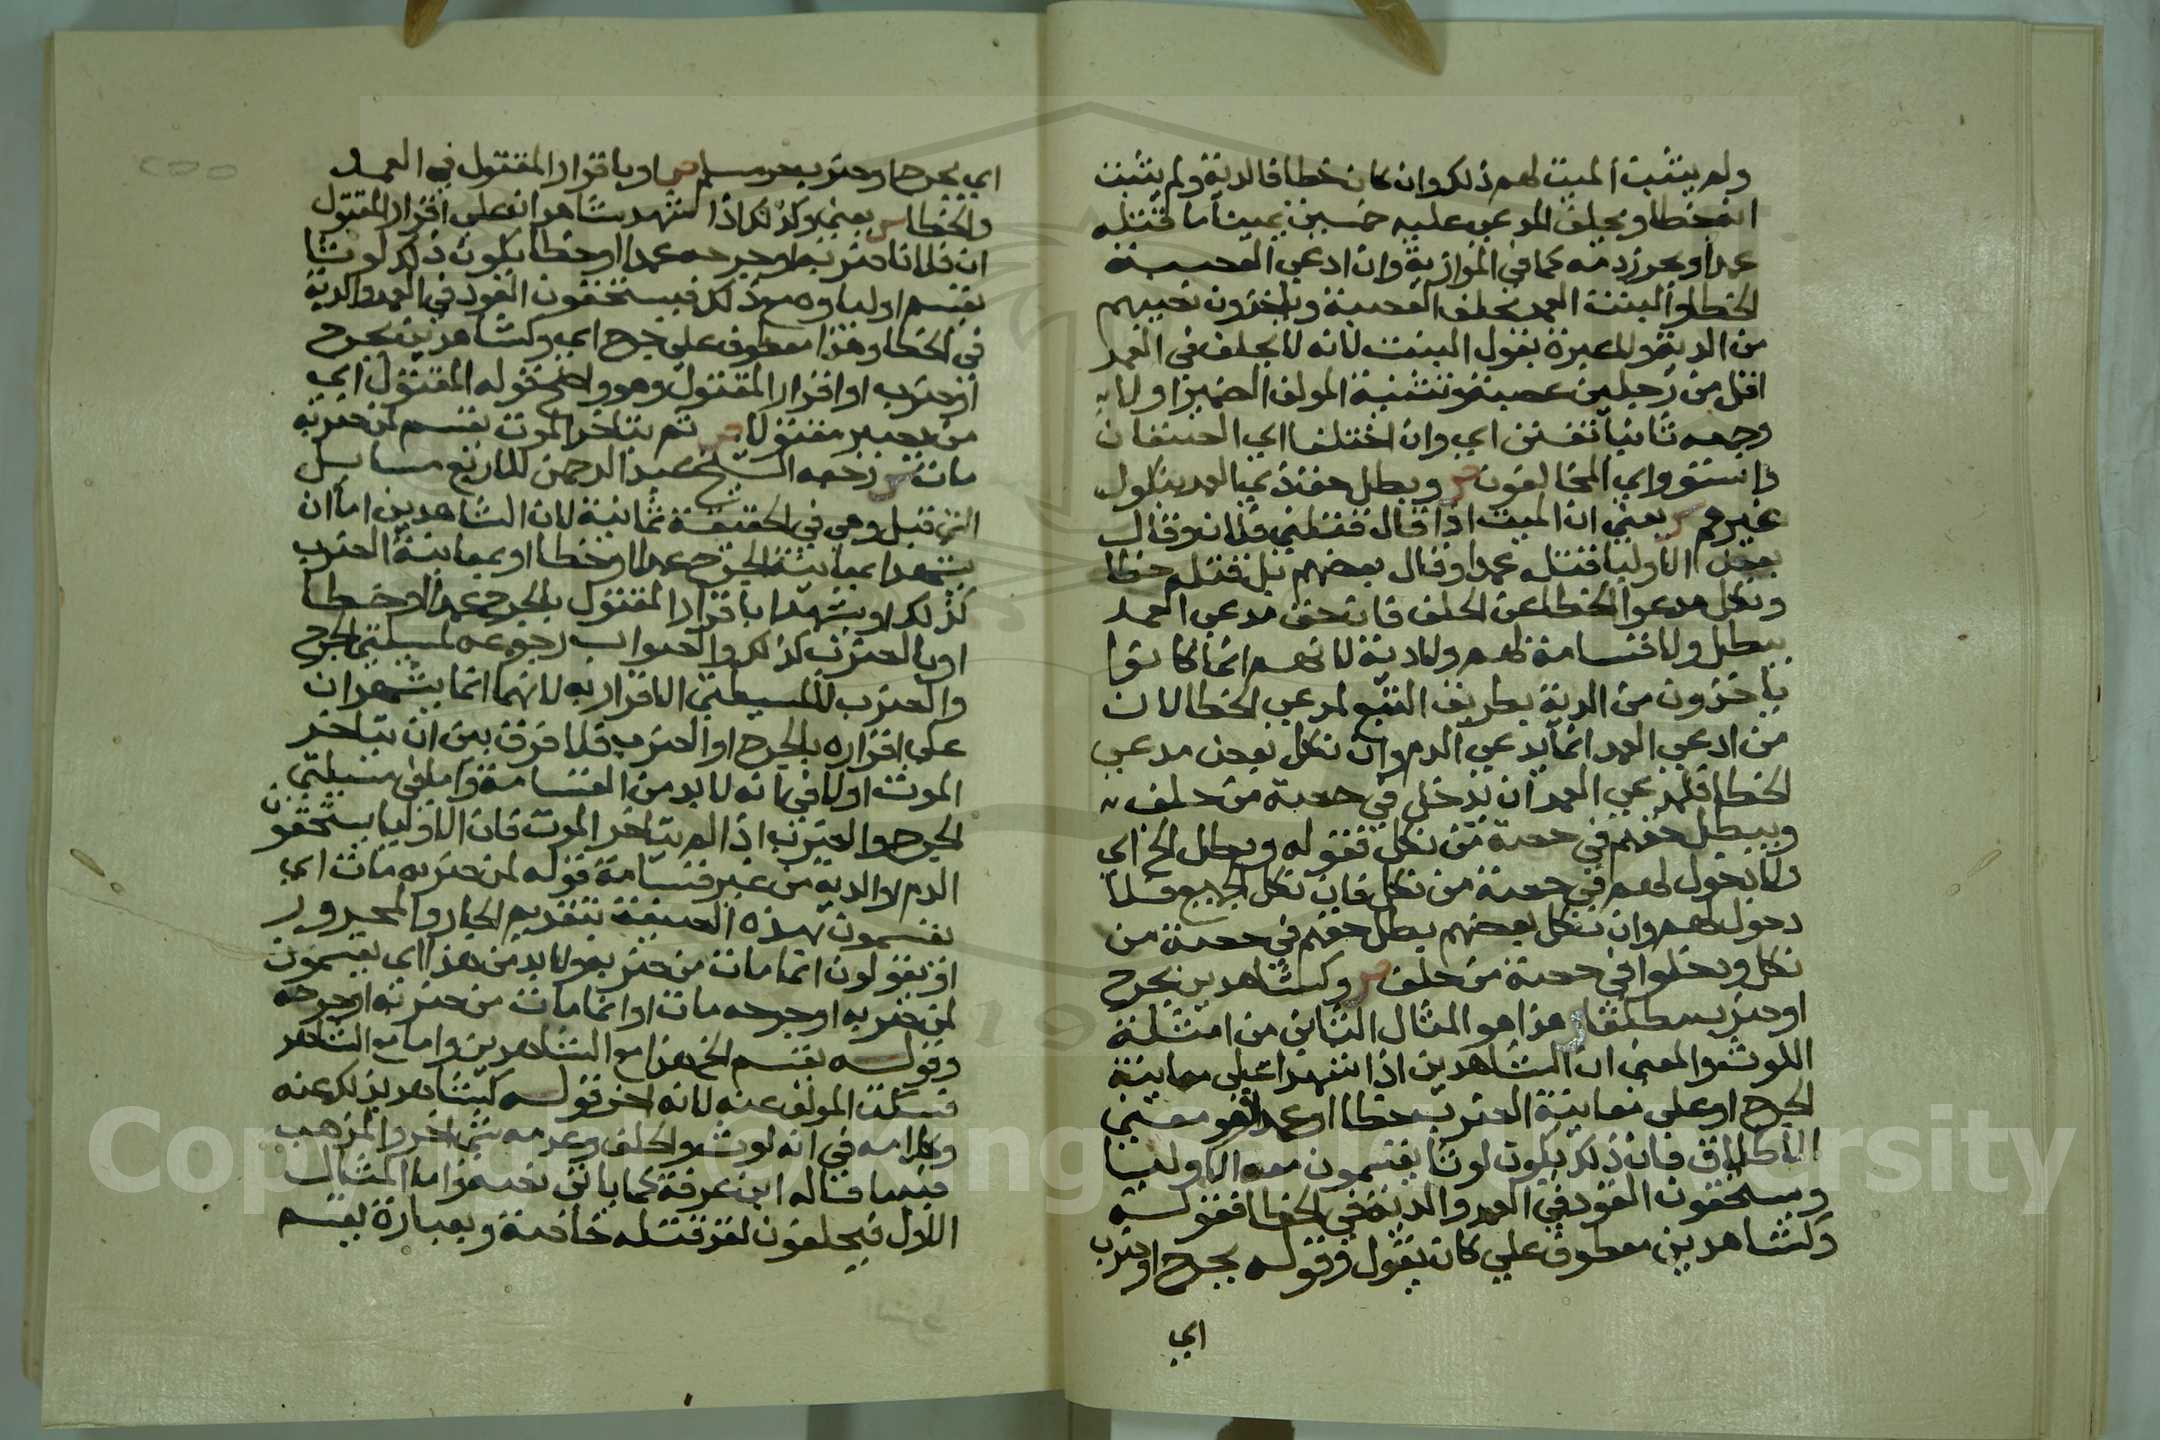 ولم يثبت الميت لهم ذلك وان كان خطا فالدية ولم يثبت
الخطا ويحلف المدعي عليه خمسين يمينا ما قتله
عمدا ويحرز دمه كما في الموازية وان ادعي العصبة
الخطا والبنت العمد يحلف العصبة وياخذون نصيبهم
من الدية ولا عبرة بقول البنت لانه لا يحلف في العمد
اقل من رجلين عصبة وتثنية المولف الضمير اولا
وجمعه ثانيا تفنن اي وان اختلفا اي الصنفان
واستووا اي المخالفون ص وبطل حق ذي العمد بنكول
غيرهم ش يعني ان الميت اذا قال قتلني فلان وقال
بعض الاوليا قتله عمدا وقال بعضهم بل قتله خطا
ونكل مدعوا الخطا عن الحلف فان حق مدعي العمد
يبطل ولا قسامة لهم ولا دية لانهم انما كانوا
ياخذون من الدية بطريق التبع لمدعي الخطا لان
من ادعي العمد انما يدعي الدم وان نكل بعض مدعي
الخطا فلمدعي العمد ان يدخل في حصة من حلف
ويبطل حقهم في حصة من نكل فقوله وبطل الخ اي
ولا دخول لهم في حصة من نكل فان نكل الجميع فلا
دخول لهم وان نكل بعضهم بطل حقهم في حصة من
نكل ودخلوا في حصة من حلف ص وكشاهدين بجرح
او ضرب مطلقا ش هذا هو المثال الثاني من امثلة
اللوث والمعني ان الشاهدين اذا شهدا علي معاينة
الجرح او علي معاينة الضرب خطا او عمدا وهو معني
الاطلاق فان ذلك يكون لوثا يقسمون معه الاوليا
ويستحقون القود في العمد والدية في الخطا فقوله
وكشاهدين معطوف علي كان يقول وقوله بجرح او ضرب
اي
اي بجرح او ضرب حر مسلم ص او باقرار المقتول في العمد
والخطا ش يعني وكذلك اذا شهد شاهدان علي اقرار المقتول
ان فلانا ضربه او جرحه عمدا او خطا يكون ذلك لوثا
يقسم اولياوه مع ذلك فيستحقون القود في العمد والدية
في الخطا وهذا معطوف علي جرح اي وكشاهدين بجرح
او ضرب او اقرار المقتول وهو واضح فقوله المقتول اي
من يصير مقتولا ص ثم يتاخر الموت يقسم لمن ضربه
مات ش رجعه الشيخ عبد الرحمن للاربع مسايل
التي قبل وهي في الحقيقة ثمانية لان الشاهدين اما ان
يشهدا بمعاينة الجرح عمدا او خطا او بمعاينة الضرب
كذلك او يشهدا باقرار المقتول بالجرح عمدا او خطا
او بالضرب كذلك والصواب رجوعه لمسيلتي الجرح
والضرب لا لمسيلتي الاقرار به لانهما انما يشهدان
علي اقراره بالجرح او الضرب فلا فرق بين ان يتاخر
الموت اولا في انه لا بد من القسامة واما في مسيلتي
الجرح والضرب اذا لم يتاخر الموت فان الاوليا يستحقون
الدم او الدية من غير قسامة قوله لمن ضربه مات اي
يقسمون بهذه الصيغة بتقديم الجار والمجرور
او يقولون انما مات من ضربه ولا بد من هذا اي يقسمون
لمن ضربه او جرحه مات او انما مات من ضربه او جرحه
وقوله يقسم الخ هذا مع الشاهدين واما مع الشاهد
فسكت المولف عنه لانه اخر قوله كبشاهد بذلك عنه
وكلامه في انه لوث والحلف وعدمه شي اخر والمذهب
فيما قاله ابن عرفة كما ياتي نصه واما المثال
الاول فيحلفون لقد قتله خاصة وبعبارة يقسم